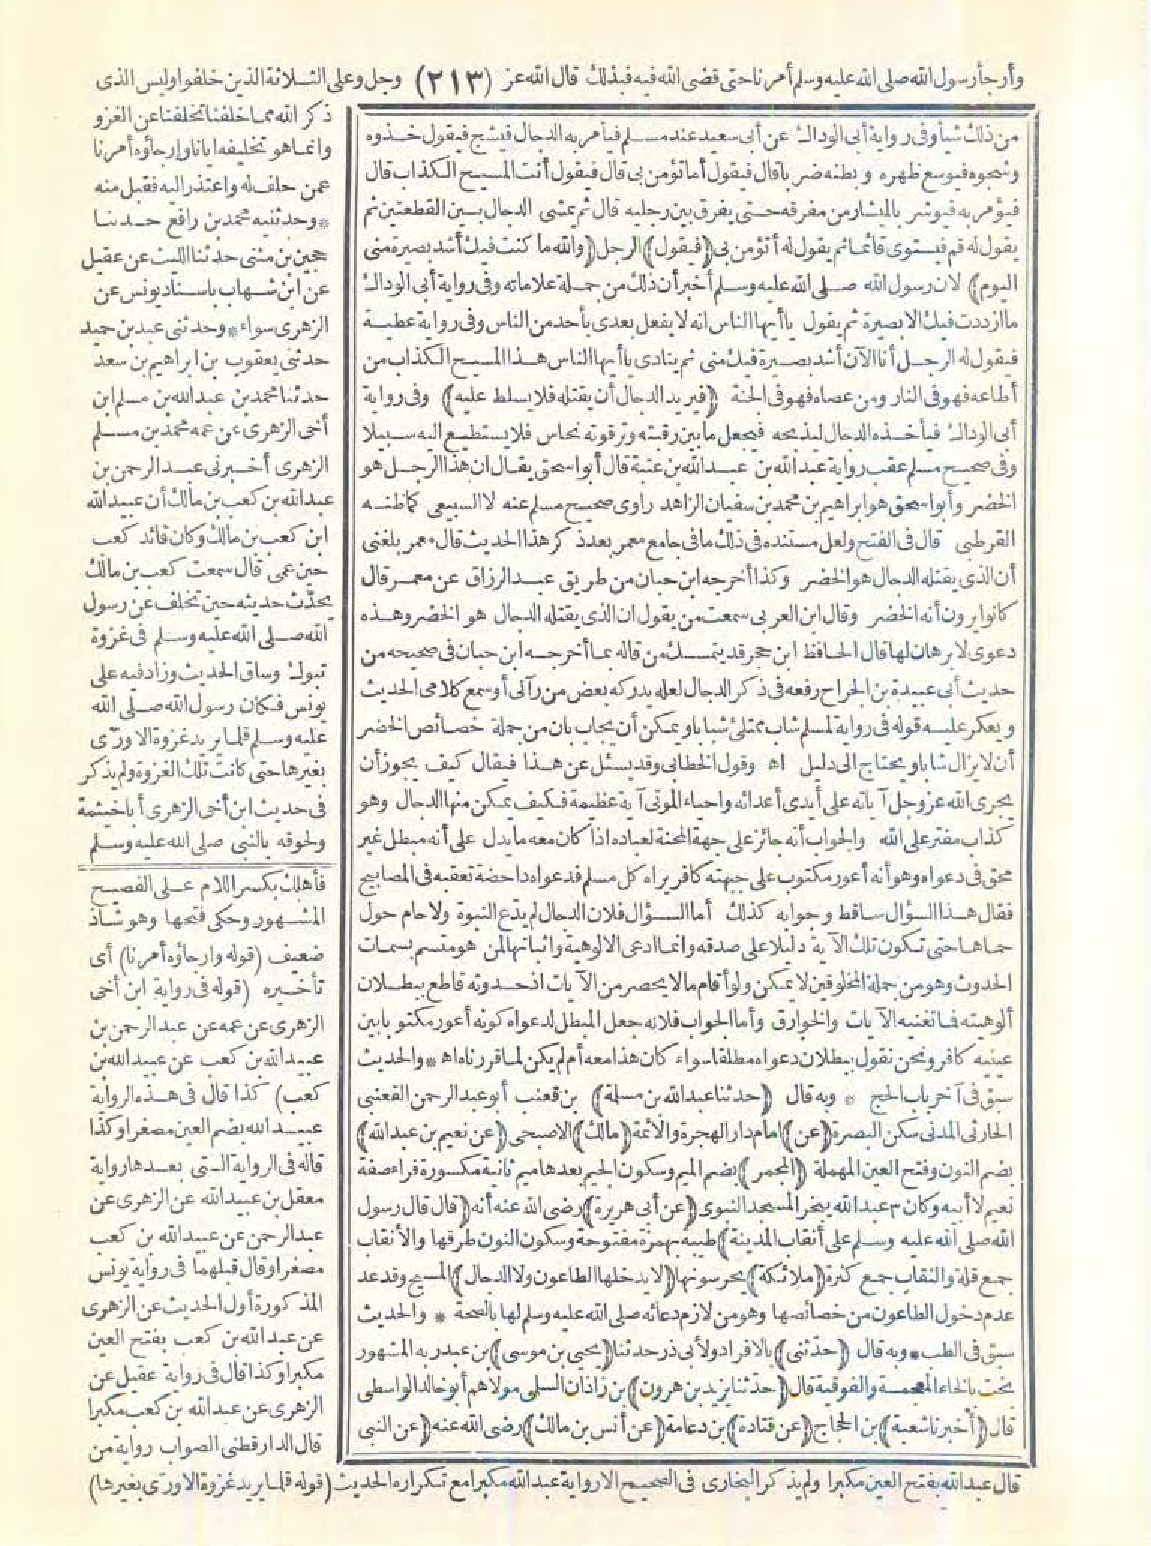 وأرجأ رسول الله صلى الله عليه وسلم أمرنا حتى قضى الله فيه فبذلك قال الله عز (٢١٣) وجل وعلى الثلاثة الذين خلفوا وليس الذى
من ذلك شيأ وفى رواية أبى الوداك عن أبى سعيد عند مسلم فيأمر به الدجال فيشج فيقول خذوه
وشجوه فيوسع ظهره وبطنه ضربا قال فيقول أما تؤمن بى قال فيقول أنت المسيح الكذاب قال
فيؤمر به فيوشر بالمنشار من مفرقه حتى يفرق بين رجليه قال ثم يمشى الدجال بين القطعتين ثم
يقول له قم فيستوى قائما ثم يقول له أتؤمن بى (فيقول) الرجل (والله ما كنت فيك أشد بصيرة منى
اليوم) لان رسول الله صلى الله عليه وسلم أخبر أن ذلك من جملة علاماته وفى رواية أبى الوداك
ما ازددت فيك الا بصيرة ثم يقول يا أيها الناس انه لا يفعل بعدى بأحد من الناس وفى رواية عطية
فيقول له الرجل أنا الآن أشد بصيرة فيك منى ثم ينادى يا أيها الناس هذا المسيح الكذاب من
أطاعه فهو فى النار ومن عصاه فهو فى الجنة (فيريد الدجال أن يقتله فلا يسلط عليه) وفى رواية
أبى الوداك فيأخذه الدجال ليذبحه فيجعل ما بين رقبته وترقوته نحاس فلا يستطيع اليه سبيلا
وفى صحيح مسلم عقب رواية عبد الله بن عبد الله بن عتبة قال أبو اسحق يقال ان هذا الرجل هو
الخضر وأبو اسحق هو ابراهيم بن محمد بن سفيان الزاهد راوى صحيح مسلم عنه لا السبيعى كما ظنه
القرطبى قال فى الفتح ولعل مستنده فى ذلك ما فى جامع معمر بعد ذكر هذا الحديث قال معمر بلغنى
أن الذى يقتله الدجال هو الخضر وكذا أخرجه ابن حبان من طريق عبد الرزاق عن معمر قال
كانوا يرون أنه الخضر وقال ابن العربى سمعت من يقول ان الذى يقتله الدجال هو الخضر وهذه
دعوى لا برهان لها قال الحافظ ابن حجر قد يتمسك من قاله بما أخرجه ابن حبان فى صحيحه من
حديث أبى عبيدة بن الجراح رفعه فى ذكر الدجال لعله يدركه بعض من رآنى أو سمع كلامى الحديث
ويعكر عليه قوله فى رواية لمسلم شاب ممتلئ شبابا ويمكن أن يجاب بان من جملة خصائص الخضر
أن لا يزال شابا ويحتاج الى دليل اه وقول الخطابى وقد يسئل عن هذا فيقال كيف يجوز أن
يجرى الله عز وجل آياته على أيدى أعدائه واحياء الموتى آية عظيمة فكيف يمكن منها الدجال وهو
كذاب مفتر على الله والجواب أنه جائز على جهة المحنة لعباده اذا كان معه ما يدل على أنه مبطل غير
محق فى دعواه وهو أنه أعور مكتوب على جبهته كافر يراه كل مسلم فدعواه داحضة تعقبه فى المصابيح
فقال هذا السؤال ساقط وجوابه كذلك أما السؤال فلان الدجال لم يدّع النبوة ولا حام حول
حماها حتى تكون تلك الآية دليلا على صدقه وانما ادعى الالوهية واثباتها لمن هو متسم بسمات
الحدوث وهو من جملة المخلوقين لا يمكن ولو أقام ما لا يحصر من الآيات اذ حدوثه قاطع ببطلان
ألوهيته فما تغنيه الآيات والخوارق وأما الجواب فلانه جعل المبطل لدعواه كونه أعور مكتوبا بين
عينيه كافر ونحن نقول ببطلان دعواه مطلقا سواء كان هذا معه أم لم يكن لما قررناه اه * والحديث
سبق فى آخر باب الحج * وبه قال (حدثنا عبد الله بن مسلمة) بن قعنب أبو عبد الرحمن القعنبى
الحارثى المدنى سكن البصرة (عن) امام دار الهجرة والأئمة (مالك) الاصبحى (عن نعيم بن عبد الله)
بضم النون وفتح العين المهملة (المجمر) بضم الميم وسكون الجيم بعدها ميم ثانية مكسورة فراء صفة
نعيم لا أبيه وكان عبد الله يبخر المسجد النبوى (عن أبى هريرة) رضى الله عنه أنه (قال قال رسول
الله صلى الله عليه وسلم على أنقاب المدينة) طيبة بهمزة مفتوحة وسكون النون طرقها والأنقاب
جمع قلة والنقاب جمع كثرة (ملائكة) يحرسونها (لا يدخلها الطاعون ولا الدجال) المسيح وقد عد
عدم دخول الطاعون من خصائصها وهو من لازم دعائه صلى الله عليه وسلم لها بالصحة * والحديث
سبق فى الطب * وبه قال (حدّثنى) بالافراد ولأبى ذر حدثنا (يحيى بن موسى) بن عبد ربه المشهور
بخت بالخاء المعجمة والفوقية قال (حدّثنا يزيد بن هرون) بن زاذان السلمى مولاهم أبو خالد الواسطى
قال (أخبرنا شعبة) بن الحجاج (عن قتادة) بن دعامة (عن أنس بن مالك) رضى الله عنه (عن النبى
ذكر الله مما خلفنا تخلفنا عن الغزو
وانما هو تخليفه ايانا وارجاؤه أمرنا
عمن حلف له واعتذر اليه فقبل منه
* وحدثنيه محمد بن رافع حدثنا
حجين بن مثنى حدثنا الليث عن عقيل
عن ابن شهاب باسناد يونس عن
الزهرى سواء * وحدثنى عبد بن حميد
حدثنى يعقوب بن ابراهيم بن سعد
حدثنا محمد بن عبد الله بن مسلم ابن
أخى الزهرى عن عمه محمد بن مسلم
الزهرى أخبرنى عبد الرحمن بن
عبد الله بن كعب بن مالك أن عبيد الله
ابن كعب بن مالك وكان قائد كعب
حين عمى قال سمعت كعب بن مالك
يحدّث حديثه حين تخلف عن رسول
الله صلى الله عليه وسلم فى غزوة
تبوك وساق الحديث وزاد فيه على
يونس فكان رسول الله صلى الله
عليه وسلم قلما يريد غزوة الا ورّى
بغيرها حتى كانت تلك الغزوة ولم يذكر
فى حديث ابن أخى الزهرى أبا خيثمة
ولحوقه بالنبى صلى الله عليه وسلم
فأهلك بكسر اللام على الفصيح
المشهور وحكى فتحها وهو شاذ
ضعيف (قوله وارجاؤه أمرنا) أى
تأخيره (قوله فى رواية ابن أخى
الزهرى عن عمه عن عبد الرحمن بن
عبيد الله بن كعب عن عبيد الله بن
كعب) كذا قال فى هذه الرواية
عبيد الله بضم العين مصغرا وكذا
قاله فى الرواية التى بعدها رواية
معقل بن عبيد الله عن الزهرى عن
عبد الرحمن عن عبيد الله بن كعب
مصغرا وقال قبلهما فى رواية يونس
المذكورة أول الحديث عن الزهرى
عن عبد الله بن كعب بفتح العين
مكبرا وكذا قال فى رواية عقيل عن
الزهرى عن عبد الله بن كعب مكبرا
قال الدارقطنى الصواب رواية من
قال عبد الله بفتح العين مكبرا ولم يذكر البخارى فى الصحيح الا رواية عبد الله مكبرا مع تكراره الحديث (قوله قلما يريد غزوة الا ورّى بغيرها)